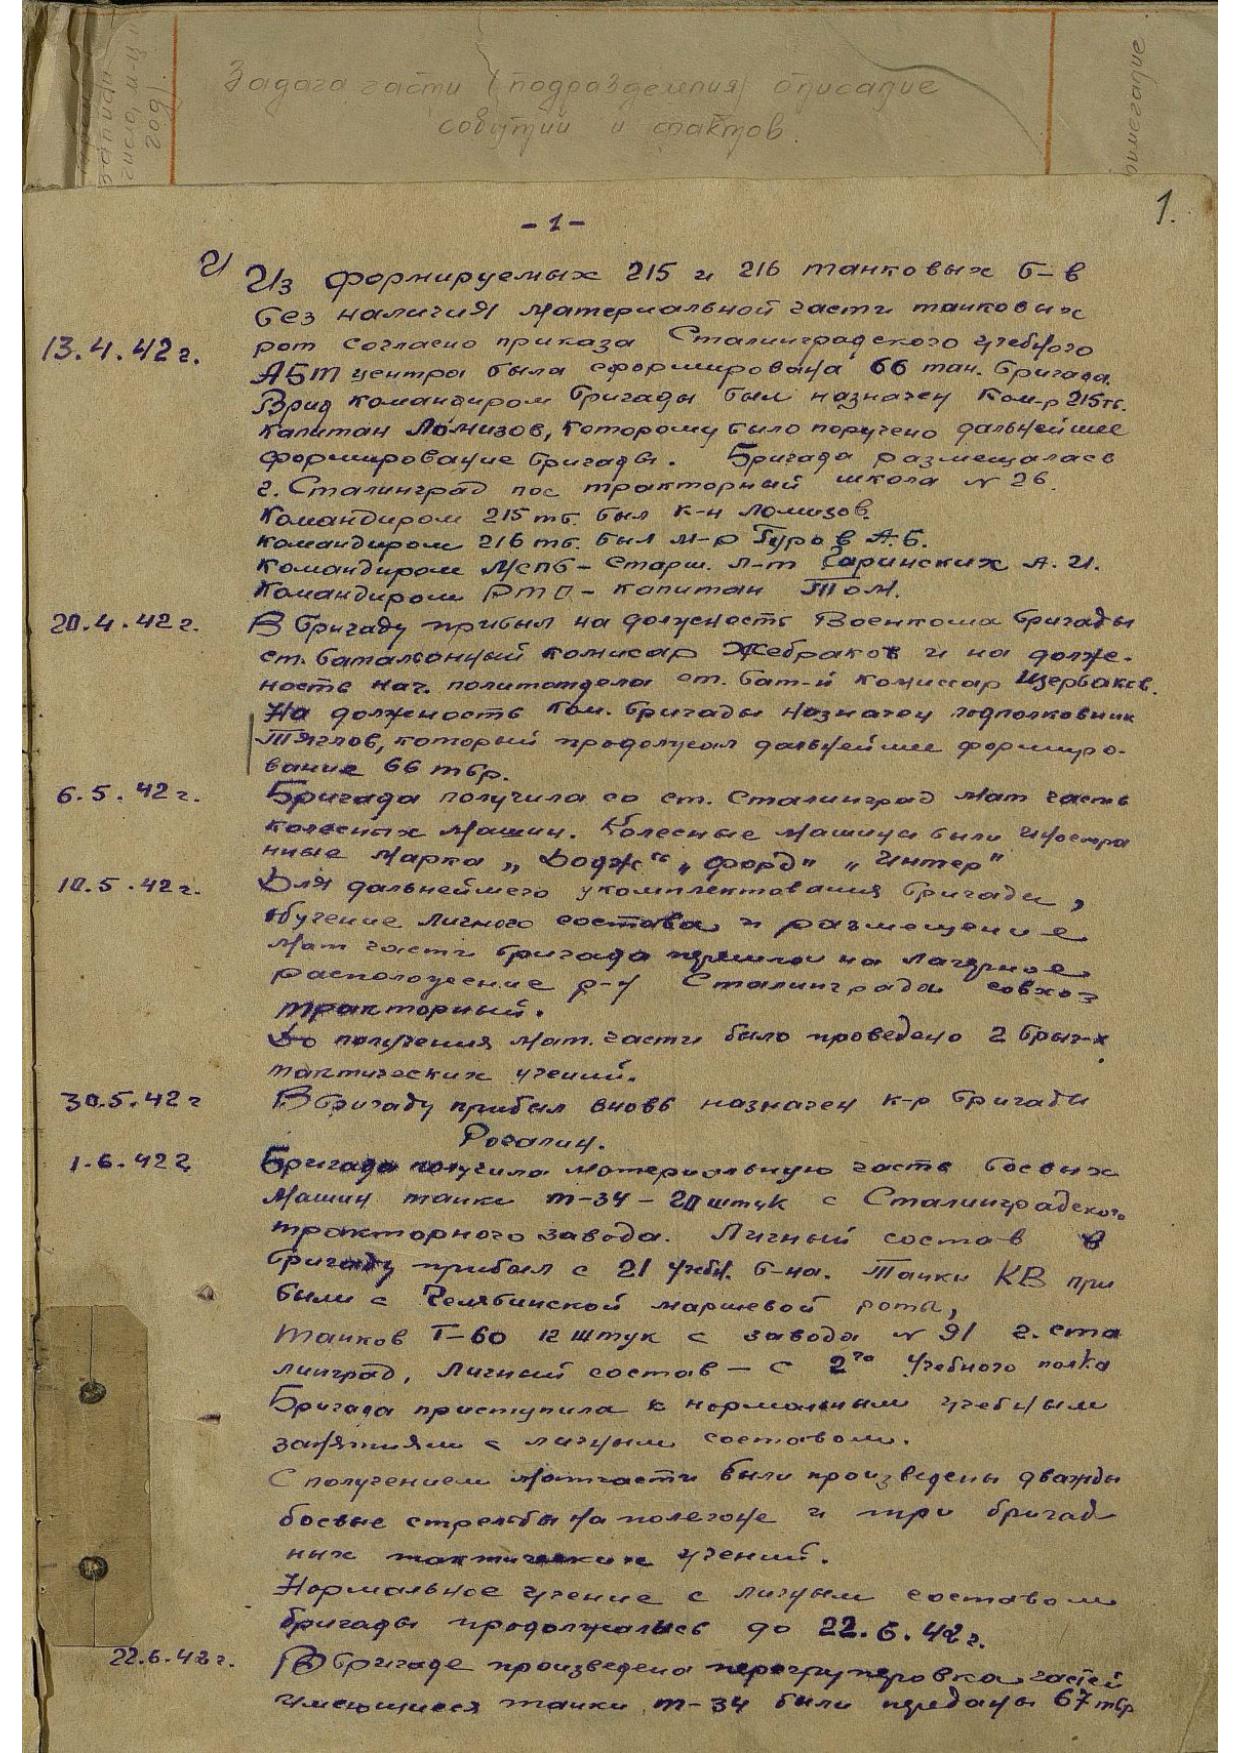 записи
число, м-ц
год
Задача части (подразделения) описание
событий и фактов.
1.
- 1 -
Из формируемых 215 и 216 танковых б-в
без наличия материальной части танковых
13.4.42 г. рот согласно приказа Сталинградского учебного
АБТ центра была сформирована 66 тан. бригада.
Врид командиром бригады был назначен Ком-р 215 тб.
капитан Ломизов, которому было поручено дальнейшее
формирование бригады. Бригада размещалась
г. Сталинград пос тракторный школа № 26.
Командиром 215 тб. был к-н Ломизов.
Командиром 216 тб. был м-р Гуров А.Б.
Командиром МСПБ - Старш. л-т Гаринских А.И.
Командиром РТО - капитан Том.
20.4.42 г. В бригаду прибыл на должность Военкома бригады
ст. батальонный комисар Жебраков и на долже-
ность нач. политотдела ст. бат-й комиссар Щербаков.
На должность ком. бригады назначен подполковник
Тяглов, который продолжал дальнейшее формиро-
вание 66 тбр.
6.5.42 г. Бригада получила со ст. Сталинград мат часть
колесных машин. Колесные машины были иностра
нные марка „Додж“ „Форд" „Интер"
10.5.42 г. Для дальнейшего укомплектования бригады,
обучение личного состава и размещение
мат части бригада перешла на лагерное
расположение р-н Сталинграда совхоз
тракторный.
До получения мат. части было проведено 2 бриг-х
тактических учений.
30.5.42 г В бригаду прибыл вновь назначен к-р бригады
Росалин.
1.6.42 г Бригада получила материальную часть боевых
машин танки Т-34 - 20 штук с Сталинградского
тракторного завода. Личный состав в
бригаду прибыл с 21 учебн. б-на. Танки КВ при
были с Челябинской маршевой роты,
Танков Т-60 12 штук с завода № 91 г. Ста
линград, личный состав - с 2го Учебного полка
Бригада приступила к нормальным учебным
занятиям с личным составом.
С получением матчасти были произведены дважды
боевые стрельбы на полегоне и три бригад
ных тактических учений.
Нормальное учение с личным составом
бригады продолжались до 22.6.42 г.
22.6.42 г. В бригаде произведена перегрупперовка частей
имеющиеся танки Т-34 были переданы 67 тбр